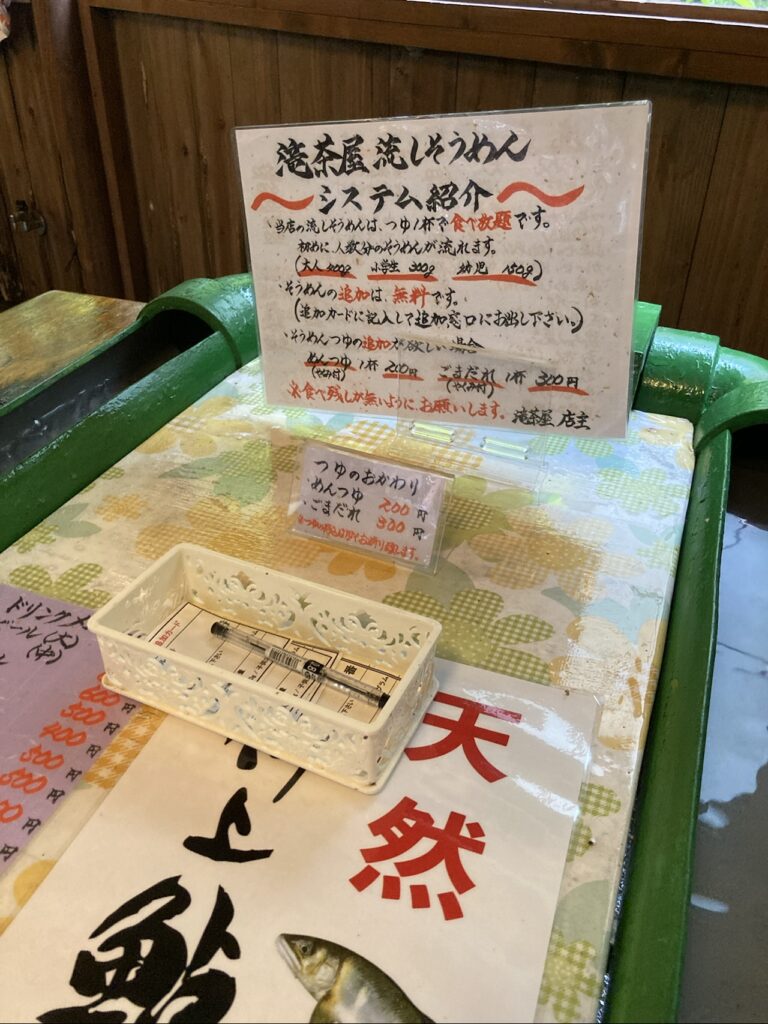 滝茶屋 流しそうめん
〜システム紹介〜
・当店の流しそうめんは、つゆ1杯で食べ放題です。
初めに、人数分のそうめんが流れます。
(大人400g 小学生300g 幼児150g)
・そうめんの追加は、無料です。
(追加カードに記入して追加窓口にお出し下さい。)
・そうめんつゆの追加が欲しい場合
めんつゆ1杯200円 ごまだれ1杯300円
(やくみ付) (やくみ付)
※食べ残しが無いように、お願いします。 滝茶屋 店主
つゆのおかわり
・めんつゆ 200円
・ごまだれ 300円
追加カード
番
ドリンク
ビール(大)
(中)
600円
500円
400円
300円
500円
円
円
天然
上
鮎